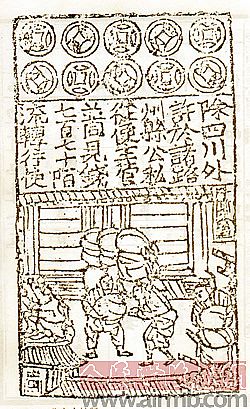 除四川外
許於諸路
州縣公私
從便主管
並同見錢
七百七十陌
流轉行使
www.airmb.com